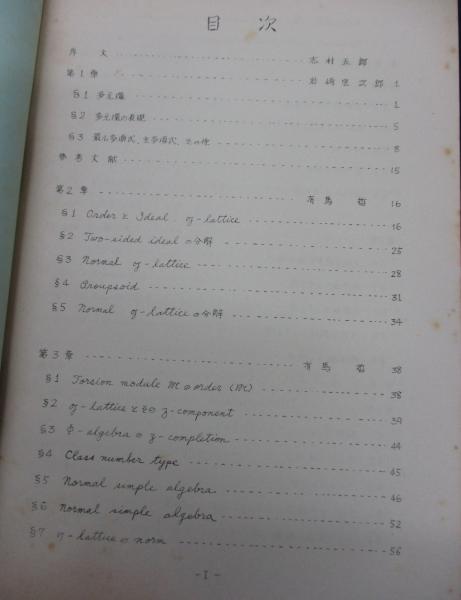 目 次
序 文 志村五郎
第1章 岩崎 次郎 1
§1 多元環 1
§2 多元環の表現 5
§3 最小多項式、主多項式、その他 8
参考文献 15
第2章 有馬 哲 16
§1 Order と Ideal. g-lattice 16
§2 Two-sided ideal の分解 25
§3 Normal g-lattice 28
§4 Groupoid 31
§5 Normal g-lattice の分解 34
第3章 有馬 哲 38
§1 Torsion module M の order (M) 38
§2 g-lattice とその z-component 39
§3 Φ-algebra の z-completion 44
§4 Class number, type 45
§5 Normal simple algebra 46
§6 Normal simple algebra 52
§7 g-lattice の norm 56
- I -